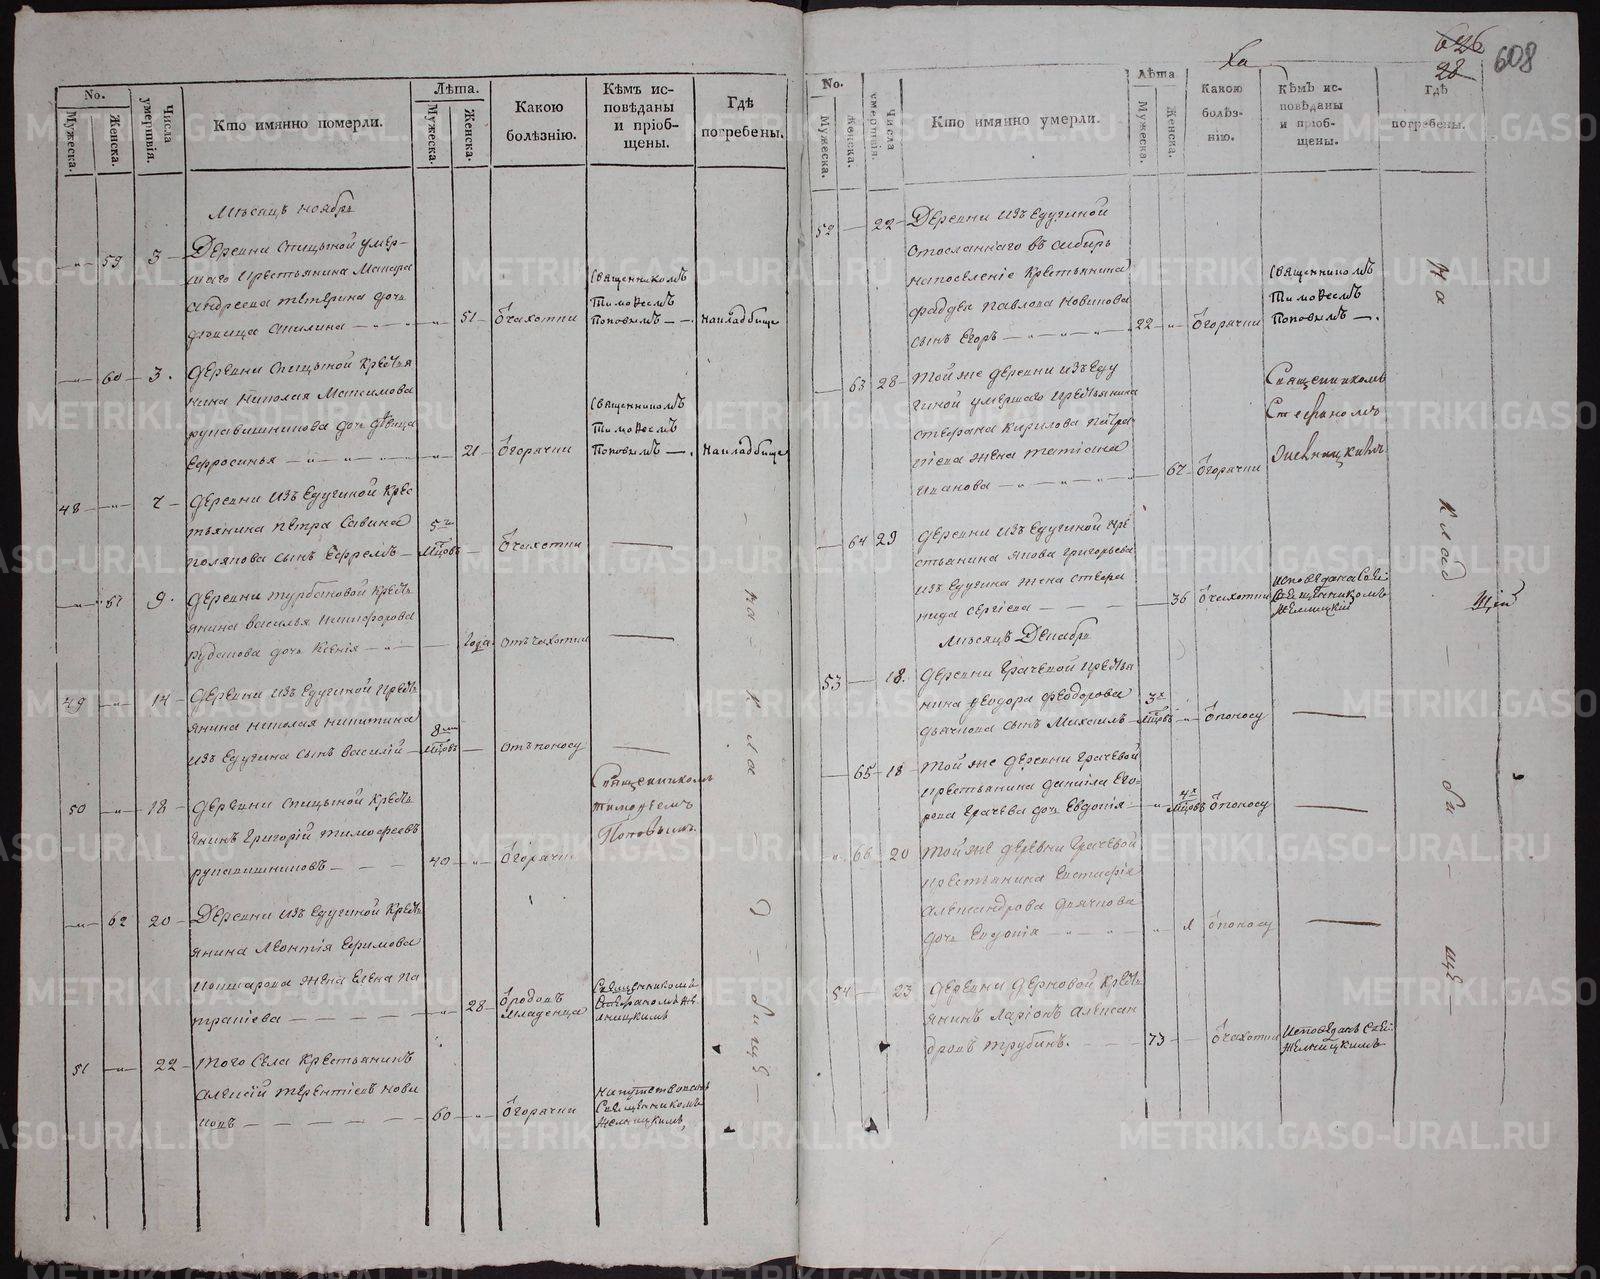 No.
Мужеска.
Женска.
Числа умершвія.
Кто имянно померли.
Лѣта.
Мужеска.
Женска.
Какою
болѣзнію.
Кѣмъ ис-
повѣданы
и пріоб-
щены.
Гдѣ
погребены.
Мѣсяцъ ноябрь
59 3 Деревни Спицыной умер-
шаго крестьянина Макара
Андреева Тетерина дочь
девица Акилина 51 ѿ чахотки
Священникомъ
Тимофеемъ
Поповымъ накладбище
60 3. Деревни Спицыной кресть
нина Николая Максимова
Рукавишникова дочь девица
Ефросинья 21 ѿ горячки
Священникомъ
Тимофеемъ
Поповымъ накладбище
48 7 Деревни Изъедугиной крес
тьянина Петра Савина
Полякова сынъ Ефремъ 5 мцовъ ѿ чахотки
61 9. Деревни Турбановой кресть
янина Василья Никифорова
дочь Ксенія Года. отъ чахотки
49 14 Деревни Изъедугиной кресть
янина Николая Никитина
Изъедугина сынъ Василій 8 мцовъ отъ поносу
50 18 Деревни Спицыной кресть
янинъ Григорій Тимофеевъ
Рукавишниковъ 40 ѿ горячки
Священникомъ
Тимофеемъ
Поповымъ.
62 20 Деревни Изъедугиной кресть
янина Леонтія Ефимова
Кошкарова жена Елена Па
тракіева 28 ѿ родовъ
младенца
Священникомъ
51 22 Того села крестьянинъ
Алексій Терентіевъ Нови
ковъ 60 ѿ горячки
Напутствованъ
Священникомъ
Желницкимъ
на кладбище
626
28
608
No.
Мужеска.
Женска.
Числа умершвія.
Кто имянно умерли.
Лѣта
Мужеска.
Женска.
Какою
болѣз-
нію.
Кѣмъ ис-
повѣданы
и пріоб-
щены.
Гдѣ
погребены.
52 22 Деревни Изъедугиной
отосланнаго въ Сибирь
на поселеніе крестьянина
Фаддея Павлова Новикова
сынъ Егоръ 22 ѿ горячки
Священникомъ
Тимофеемъ
Поповымъ
63 28 Той же деревни Изъеду
гиной умершаго крестьянина
Стефана Кирилова Патра
кіева жена Татіана
Иванова 67 ѿ горячки
Священникомъ
Стефаномъ
64 29 Деревни Изъедугиной кре
стьянина Якова Григорьева
Изъедугина жена Стефа
нида Сергіева 36 ѿ чахотки
исповедана
Священникомъ
Мѣсяцъ Декабрь
53 18. Деревни Грачевой кресть
нина Феодора Феодорова
Дьячкова сынъ Михаилъ 3х мцовъ ѿ поносу
65 18 Той же деревни Грачевой
крестьянина Даніила Его-
рова Грачева дочь Евдокія 4х мцовъ ѿ поносу
66 20 Той же деревни Грачевой
крестьянина Евстафія
Александрова Дьячкова
дочь Евдокія ѿ поносу
54 23 Деревни Дерновой кресть
янинъ Ларіонъ Алексан
дровъ Трубинъ. 73 ѿ чахотки
Исповеданъ Свещ:
Желницкимъ
на кладбище
METRIKI.GASO-URAL.RU